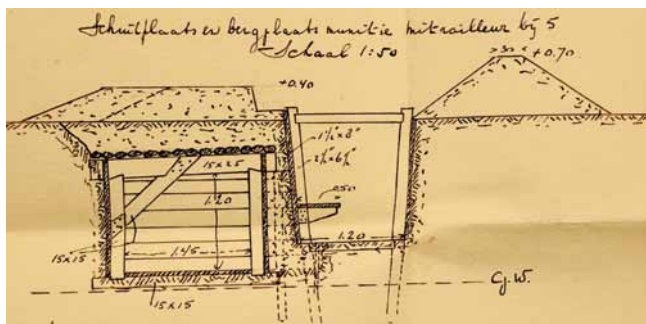 Schuilplaats en bergplaats munitie mitrailleur bij 5
Schaal 1:50
>30< +0.70
+0.40
1½"x8"
2½"x6½"
15x25
1.20
050
1.20
1.45
15x15
15x15
G.W.